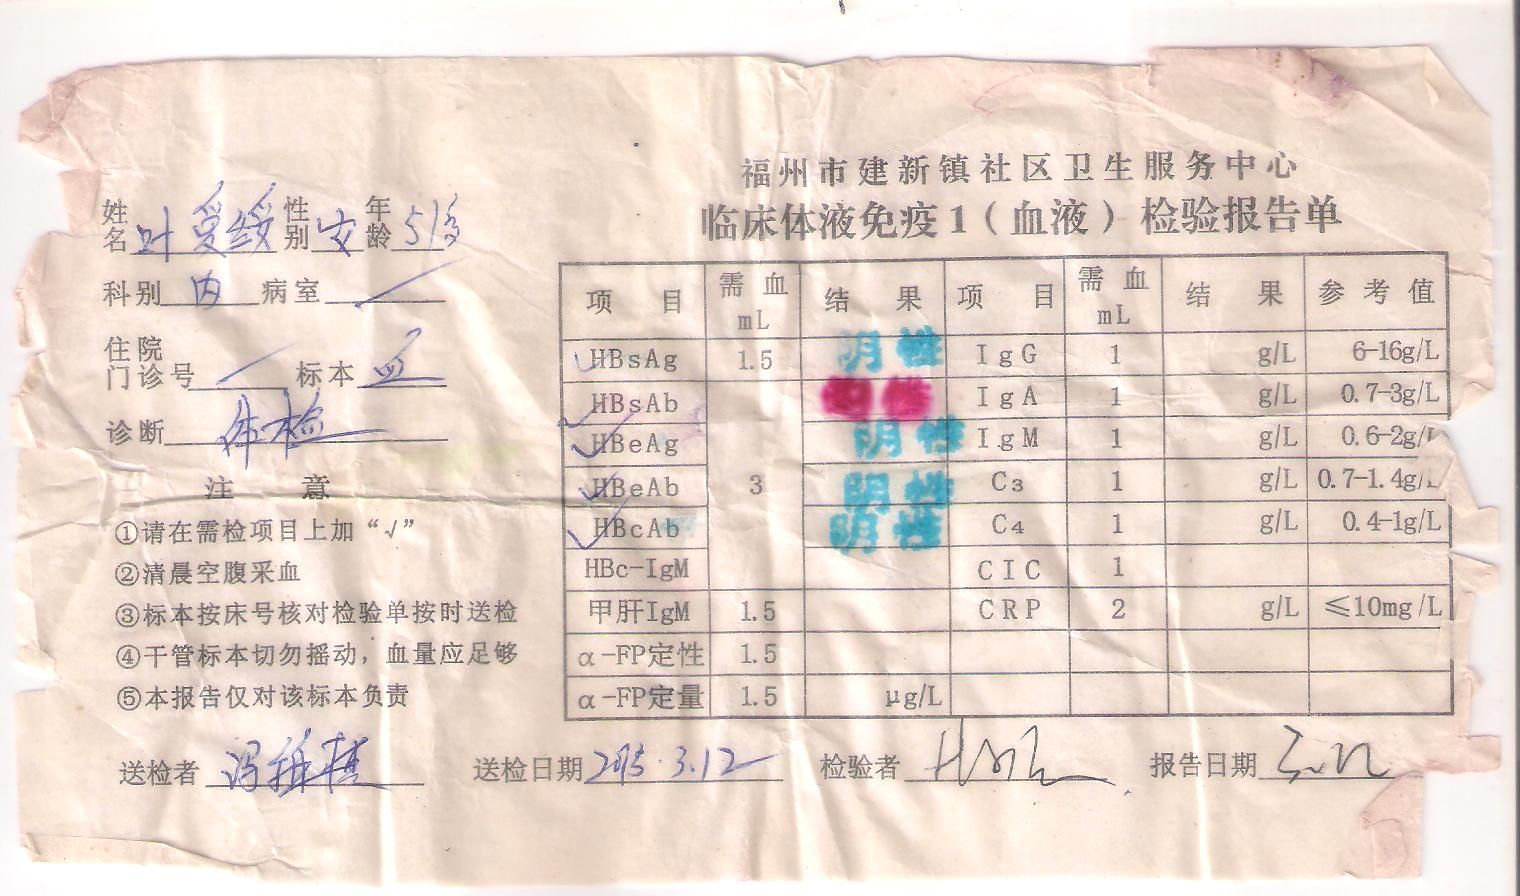 福州市建新镇社区卫生服务中心
临床体液免疫1（血液）检验报告单
姓名 叶受绥 性别 女 年龄 51岁
科别 内 病室
住院门诊号 标本 血
诊断 体检
注 意
①请在需检项目上加“√”
②清晨空腹采血
③标本按床号核对检验单按时送检
④干管标本切勿摇动，血量应足够
⑤本报告仅对该标本负责
项 目 需血mL 结 果 项 目 需血mL 结 果 参考值
√ HBsAg 1.5 阴性 IgG 1 g/L 6-16g/L
√ HBsAb IgA 1 g/L 0.7-3g/L
√ HBeAg 阴性 IgM 1 g/L 0.6-2g/L
√ HBeAb 3 阴性 C₃ 1 g/L 0.7-1.4g/L
√ HBcAb 阴性 C₄ 1 g/L 0.4-1g/L
HBc-IgM CIC 1
甲肝IgM 1.5 CRP 2 g/L ≤10mg/L
α-FP定性 1.5
α-FP定量 1.5 μg/L
送检者 送检日期 2015.3.12 检验者 报告日期